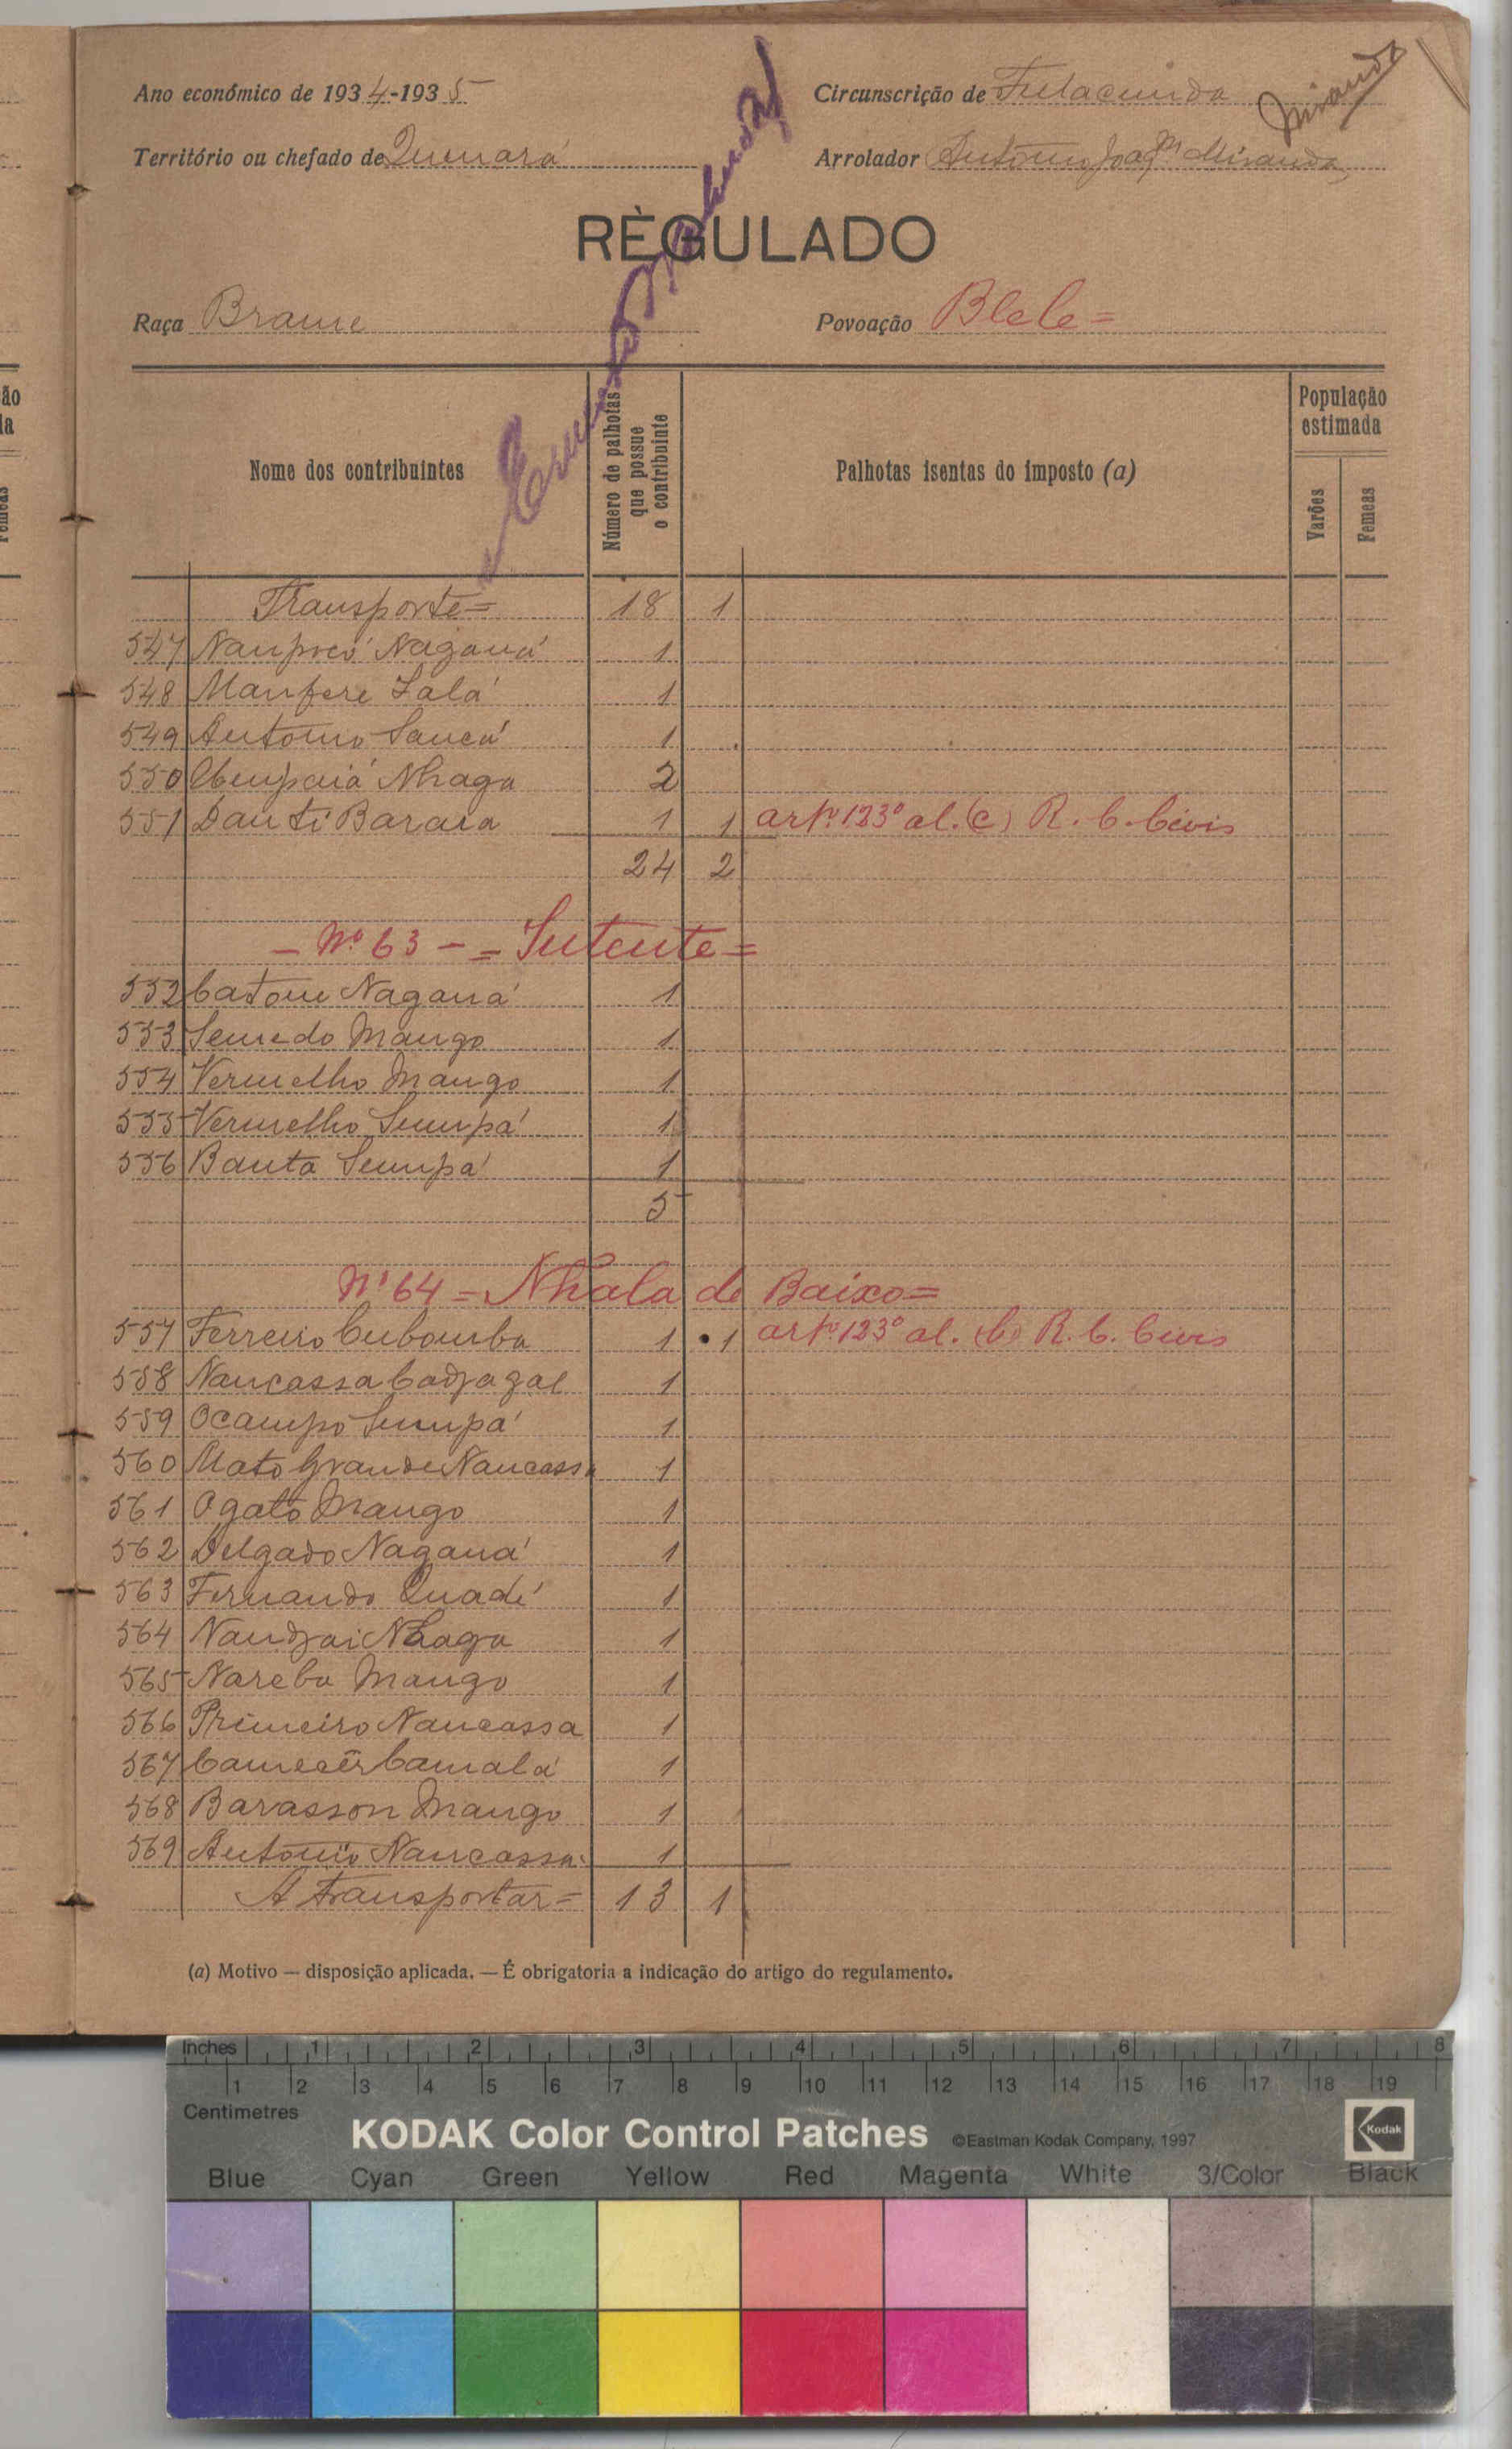 Ano económico de 1934-1935
Circunscrição de Fulacunda
Miranda
Território ou chefado de Quinará
Arrolador António Joaqm Miranda
RÈGULADO
Raça Brame
Povoação Blele=
Nome dos contribuintes
Número de palhotas que possue o contribuinte
Palhotas isentas do imposto (a)
População estimada
Varões
Femeas
Transporte= 18 1
547 Naganá 1
548 Lalá 1
549 António Sancá 1
550 Nhaga 2
551 Danti Baraia 1 1 artº 123º al. (c) R. C. Civis
24 2
- Nº 63 - = Sutente=
552 Catone Naganá 1
553 Semedo Mango 1
554 Vermelho Mango 1
555 Vermelho Sumpá 1
556 Banta Sumpá 1
5
Nº 64 = Nhala de Baixo=
557 Ferreiro Cubumba 1 1 artº 123º al. (b) R. C. Civis
558 Nancassa Cadjagal 1
559 Ocampo Sumpá 1
560 Mato Grande Nancassa 1
561 Ogato Mango 1
562 Delgado Naganá 1
563 Fernando Quadé 1
564 Nandjai Nhaga 1
565 Nareba Mango 1
566 Primeiro Nancassa 1
567 Camalá 1
568 Barasson Mango 1
569 António Nancassa 1
A transportar= 13 1
(a) Motivo — disposição aplicada. — É obrigatoria a indicação do artigo do regulamento.
Inches 1 2 3 4 5 6 7 8
1 2 3 4 5 6 7 8 9 10 11 12 13 14 15 16 17 18 19
Centimetres
KODAK Color Control Patches ©Eastman Kodak Company, 1997 Kodak
Blue Cyan Green Yellow Red Magenta White 3/Color Black